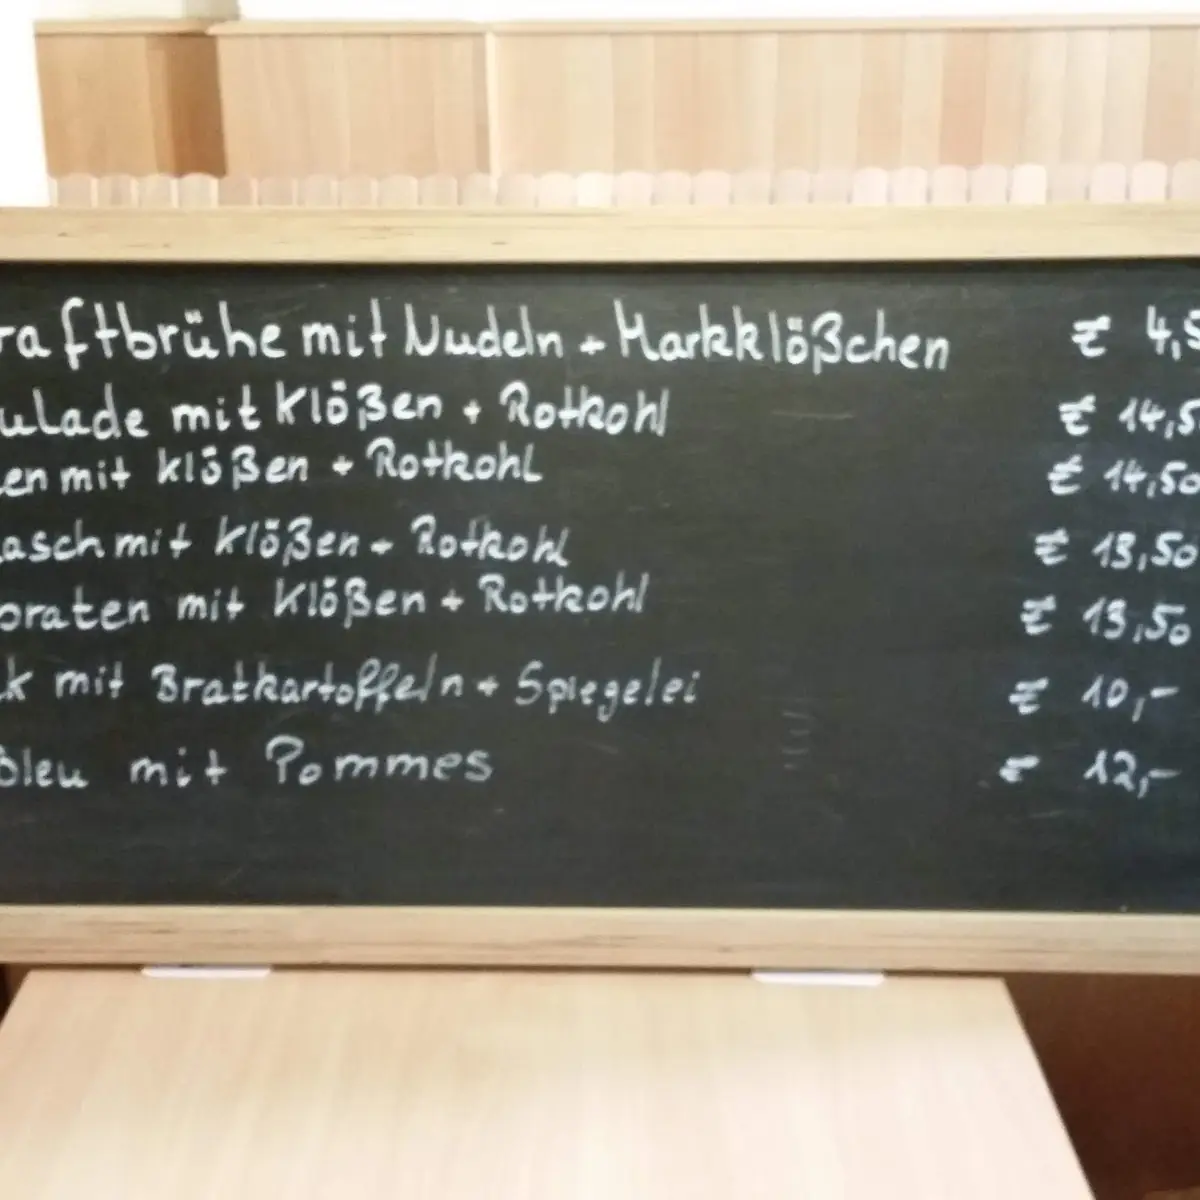 raftbrühe mit Nudeln + Markklößchen € 4,5
ulade mit Klößen + Rotkohl € 14,5
en mit Klößen + Rotkohl € 14,50
asch mit Klößen + Rotkohl € 13,50
braten mit Klößen + Rotkohl € 13,50
k mit Bratkartoffeln + Spiegelei € 10,-
Bleu mit Pommes € 12,-